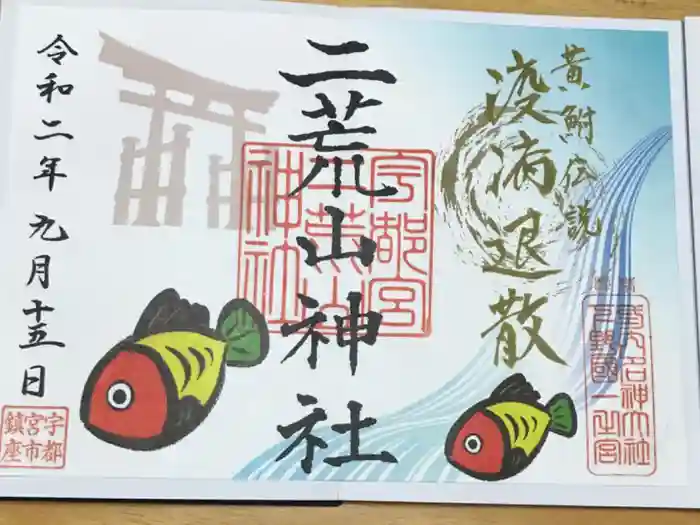 黄鮒伝説
疫病退散
名神大社
下野國一之宮
二荒山神社
宇都宮
二荒山
神社
令和二年九月十五日
宇都
宮市
鎮座